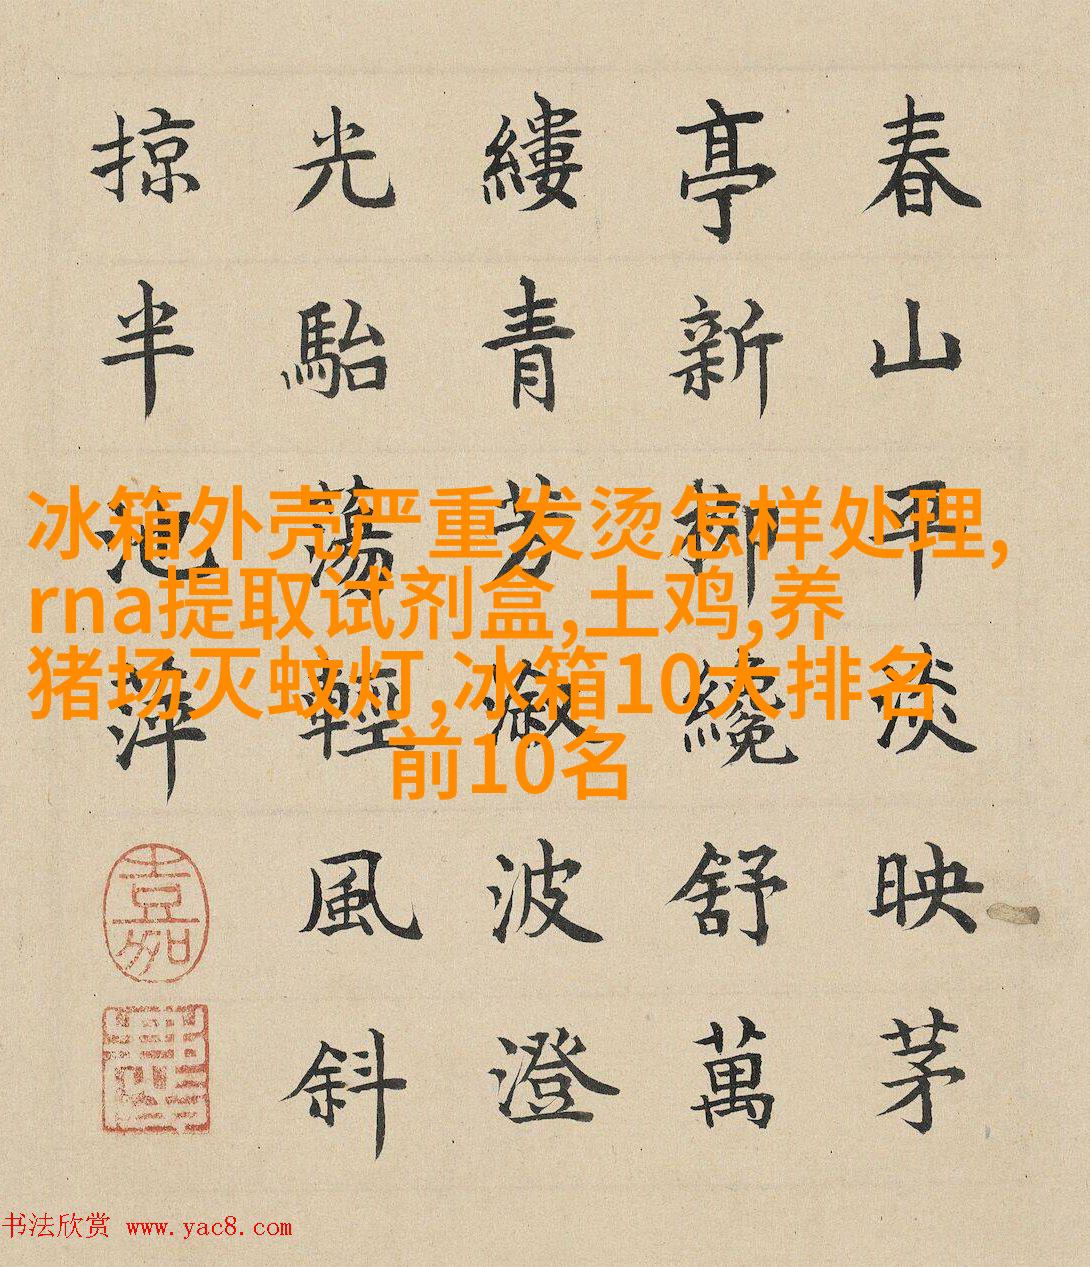 春山平淡映茅
亭新柳纔舒萬
縷青芳溆波澄
光駘蕩輕風斜
掠半池萍
嘉
冰箱外壳严重发烫怎样处理,
rna提取试剂盒,土鸡,养
猪场灭蚊灯,冰箱10大排名
前10名
书法欣赏 www.yac8.com